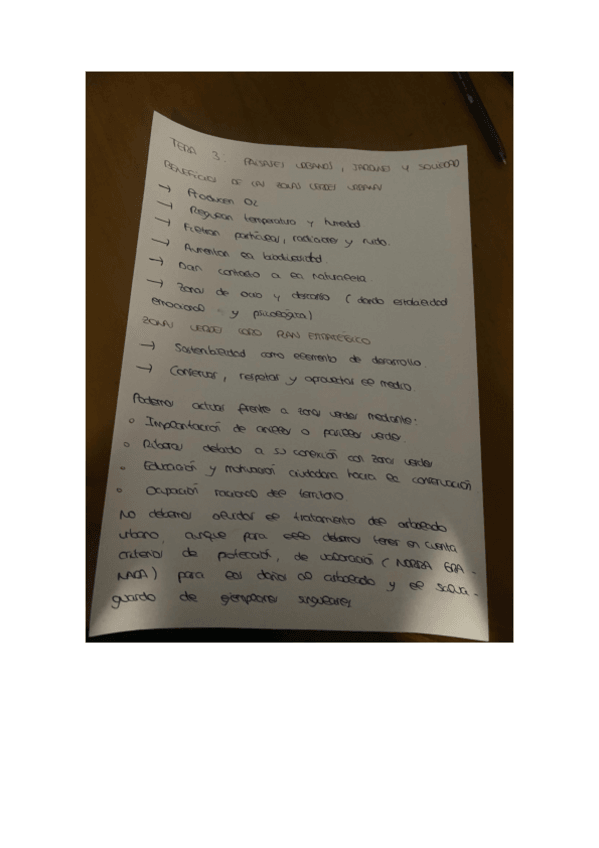 TEMA 3. PAISAJES URBANOS, JARDINES Y SOCIEDAD
BENEFICIOS DE LAS ZONAS VERDES URBANAS
→ Producen O2
→ Regulan temperatura y humedad
→ Filtran partículas, radiaciones y ruido.
→ Aumentan la biodiversidad
→ Dan contacto a la naturaleza
→ Zonas de ocio y descanso (dando estabilidad
emocional y psicológica)
ZONAS VERDES COMO PLAN ESTRATÉGICO
→ Sostenibilidad como elemento de desarrollo.
→ Conservar, respetar y aprovechar el medio
Podemos actuar frente a zonas verdes mediante:
o Implantación de anillos o pasillos verdes.
o Riberas debido a su conexión con zonas verdes
o Educación y motivación ciudadana hacia la conservación
o Ocupación racional del territorio
No debemos olvidar el tratamiento del arbolado
urbano, aunque para ello debemos tener en cuenta
criterios de protección, de valoración (NORMA GRA-
NADA) para los daños al arbolado y el salva-
guardo de ejemplares singulares